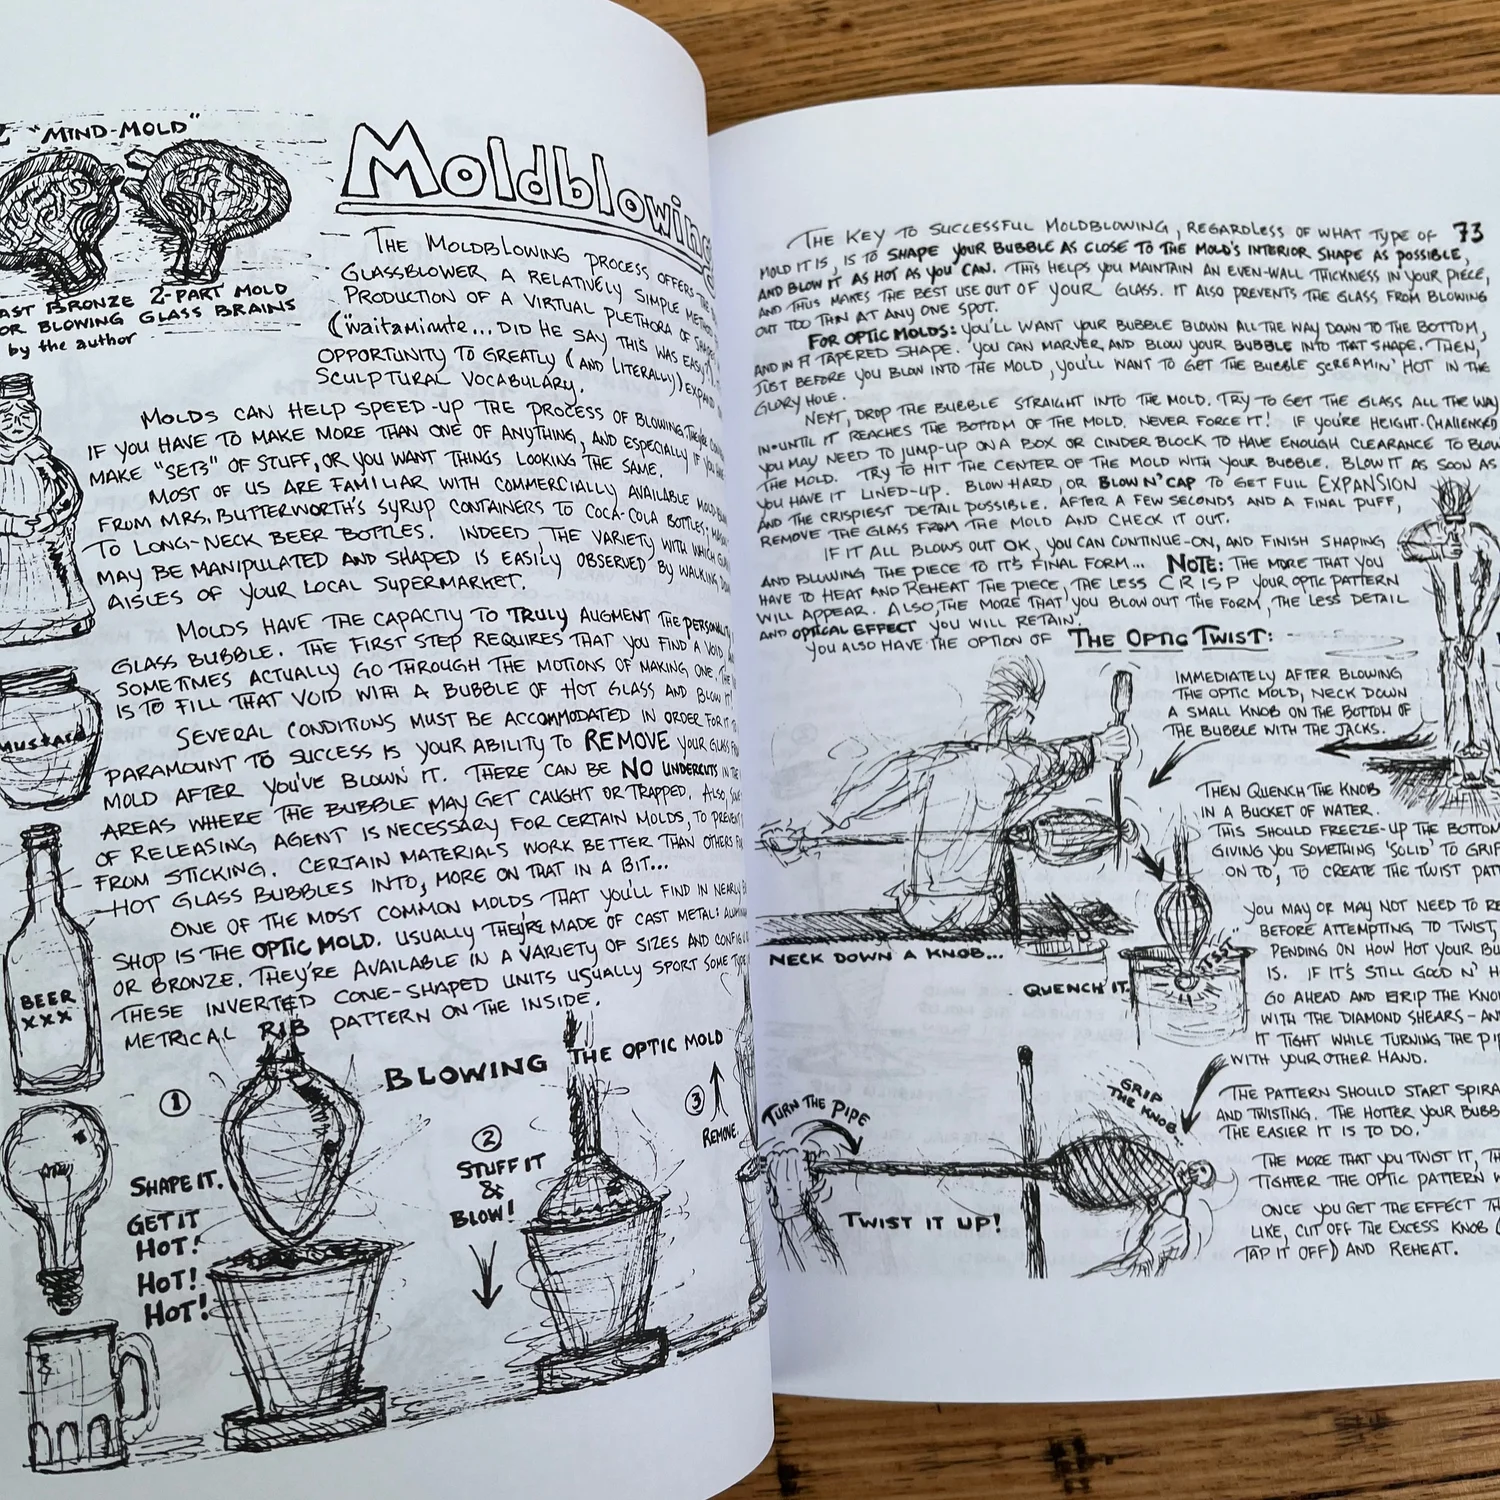 2 "MIND-MOLD"
CAST BRONZE 2-PART MOLD
FOR BLOWING GLASS BRAINS
by the author
Moldblowing
THE MOLDBLOWING PROCESS OFFERS THE
GLASSBLOWER A RELATIVELY SIMPLE METHOD
PRODUCTION OF A VIRTUAL PLETHORA OF SHAPES
("waitaminute... DID HE SAY THIS WAS EASY?),
OPPORTUNITY TO GREATLY (AND LITERALLY) EXPAND
SCULPTURAL VOCABULARY.
MOLDS CAN HELP SPEED-UP THE PROCESS OF BLOWING. THEY'RE
IF YOU HAVE TO MAKE MORE THAN ONE OF ANYTHING, AND ESPECIALLY IF YOU
MAKE "SETS" OF STUFF, OR YOU WANT THINGS LOOKING THE SAME.
MOST OF US ARE FAMILIAR WITH COMMERCIALLY AVAILABLE MOLD-
FROM MRS. BUTTERWORTH'S SYRUP CONTAINERS TO COCA-COLA BOTTLES;
TO LONG-NECK BEER BOTTLES. INDEED, THE VARIETY WITH WHICH
MAY BE MANIPULATED AND SHAPED IS EASILY OBSERVED BY WALKING
AISLES OF YOUR LOCAL SUPERMARKET.
MOLDS HAVE THE CAPACTIY TO TRULY AUGMENT THE PERSONALITY
GLASS BUBBLE. THE FIRST STEP REQUIRES THAT YOU FIND A VOID
SOMETIMES ACTUALLY GO THROUGH THE MOTIONS OF MAKING ONE. THE
IS TO FILL THAT VOID WITH A BUBBLE OF HOT GLASS AND BLOW IT!
SEVERAL CONDITIONS MUST BE ACCOMMODATED IN ORDER FOR IT
PARAMOUNT TO SUCCESS IS YOUR ABILITY TO REMOVE YOUR GLASS
MOLD AFTER YOU'VE BLOWN IT. THERE CAN BE NO UNDERCUTS IN THE
AREAS WHERE THE BUBBLE MAY GET CAUGHT OR TRAPPED. ALSO,
OF RELEASING AGENT IS NECESSARY FOR CERTAIN MOLDS, TO PREVENT
FROM STICKING. CERTAIN MATERIALS WORK BETTER THAN OTHERS
HOT GLASS BUBBLES INTO, MORE ON THAT IN A BIT...
ONE OF THE MOST COMMON MOLDS THAT YOU'LL FIND IN NEARLY
SHOP IS THE OPTIC MOLD. USUALLY THEY'RE MADE OF CAST METAL:
OR BRONZE. THEY'RE AVAILABLE IN A VARIETY OF SIZES AND
THESE INVERTED CONE-SHAPED UNITS USUALLY SPORT SOME TYPE
METRICAL RIB PATTERN ON THE INSIDE.
MUSTARD
BEER
XXX
BLOWING THE OPTIC MOLD
1
SHAPE IT.
GET IT
HOT!
HOT!
HOT!
2
STUFF IT
&
BLOW!
3
REMOVE.
73
THE KEY TO SUCCESSFUL MOLDBLOWING, REGARDLESS OF WHAT TYPE OF
MOLD IT IS, IS TO SHAPE YOUR BUBBLE AS CLOSE TO THE MOLD'S INTERIOR SHAPE AS POSSIBLE,
AND BLOW IT AS HOT AS YOU CAN. THIS HELPS YOU MAINTAIN AN EVEN-WALL THICKNESS IN YOUR PIECE,
AND THUS MAKES THE BEST USE OUT OF YOUR GLASS. IT ALSO PREVENTS THE GLASS FROM BLOWING
OUT TOO THIN AT ANY ONE SPOT.
FOR OPTIC MOLDS: YOU'LL WANT YOUR BUBBLE BLOWN ALL THE WAY DOWN TO THE BOTTOM,
AND IN A TAPERED SHAPE. YOU CAN MARVER AND BLOW YOUR BUBBLE INTO THAT SHAPE. THEN,
JUST BEFORE YOU BLOW INTO THE MOLD, YOU'LL WANT TO GET THE BUBBLE SCREAMIN' HOT IN THE
GLORY HOLE.
NEXT, DROP THE BUBBLE STRAIGHT INTO THE MOLD. TRY TO GET THE GLASS ALL THE WAY
IN-UNTIL IT REACHES THE BOTTOM OF THE MOLD. NEVER FORCE IT! IF YOU'RE HEIGHT-CHALLENGED
YOU MAY NEED TO JUMP-UP ON A BOX OR CINDER BLOCK TO HAVE ENOUGH CLEARANCE TO BLOW
THE MOLD. TRY TO HIT THE CENTER OF THE MOLD WITH YOUR BUBBLE. BLOW IT AS SOON AS
YOU HAVE IT LINED-UP. BLOW HARD, OR BLOW N' CAP TO GET FULL EXPANSION
AND THE CRISPIEST DETAIL POSSIBLE. AFTER A FEW SECONDS AND A FINAL PUFF,
REMOVE THE GLASS FROM THE MOLD AND CHECK IT OUT.
IF IT ALL BLOWS OUT OK, YOU CAN CONTINUE-ON, AND FINISH SHAPING
AND BLOWING THE PIECE TO IT'S FINAL FORM... NOTE: THE MORE THAT YOU
HAVE TO HEAT AND REHEAT THE PIECE, THE LESS CRISP YOUR OPTIC PATTERN
WILL APPEAR. ALSO, THE MORE THAT YOU BLOW OUT THE FORM, THE LESS DETAIL
AND OPTICAL EFFECT YOU WILL RETAIN.
YOU ALSO HAVE THE OPTION OF THE OPTIC TWIST:
IMMEDIATELY AFTER BLOWING
THE OPTIC MOLD, NECK DOWN
A SMALL KNOB ON THE BOTTOM OF
THE BUBBLE WITH THE JACKS.
THEN QUENCH THE KNOB
IN A BUCKET OF WATER.
THIS SHOULD FREEZE-UP THE BOTTOM
GIVING YOU SOMETHING 'SOLID' TO GRIP
ON TO, TO CREATE THE TWIST
NECK DOWN A KNOB...
QUENCH IT.
YOU MAY OR MAY NOT NEED TO
BEFORE ATTEMPTING TO TWIST,
PENDING ON HOW HOT YOUR
IS. IF IT'S STILL GOOD N'
GO AHEAD AND GRIP THE KNOB
WITH THE DIAMOND SHEARS-
IT TIGHT WHILE TURNING THE
WITH YOUR OTHER HAND.
TURN THE PIPE
GRIP
THE KNOB...
TWIST IT UP!
THE PATTERN SHOULD START
AND TWISTING. THE HOTTER YOUR
THE EASIER IT IS TO DO.
THE MORE THAT YOU TWIST IT,
TIGHTER THE OPTIC PATTERN
ONCE YOU GET THE EFFECT
LIKE, CUT OFF THE EXCESS KNOB
TAP IT OFF) AND REHEAT.